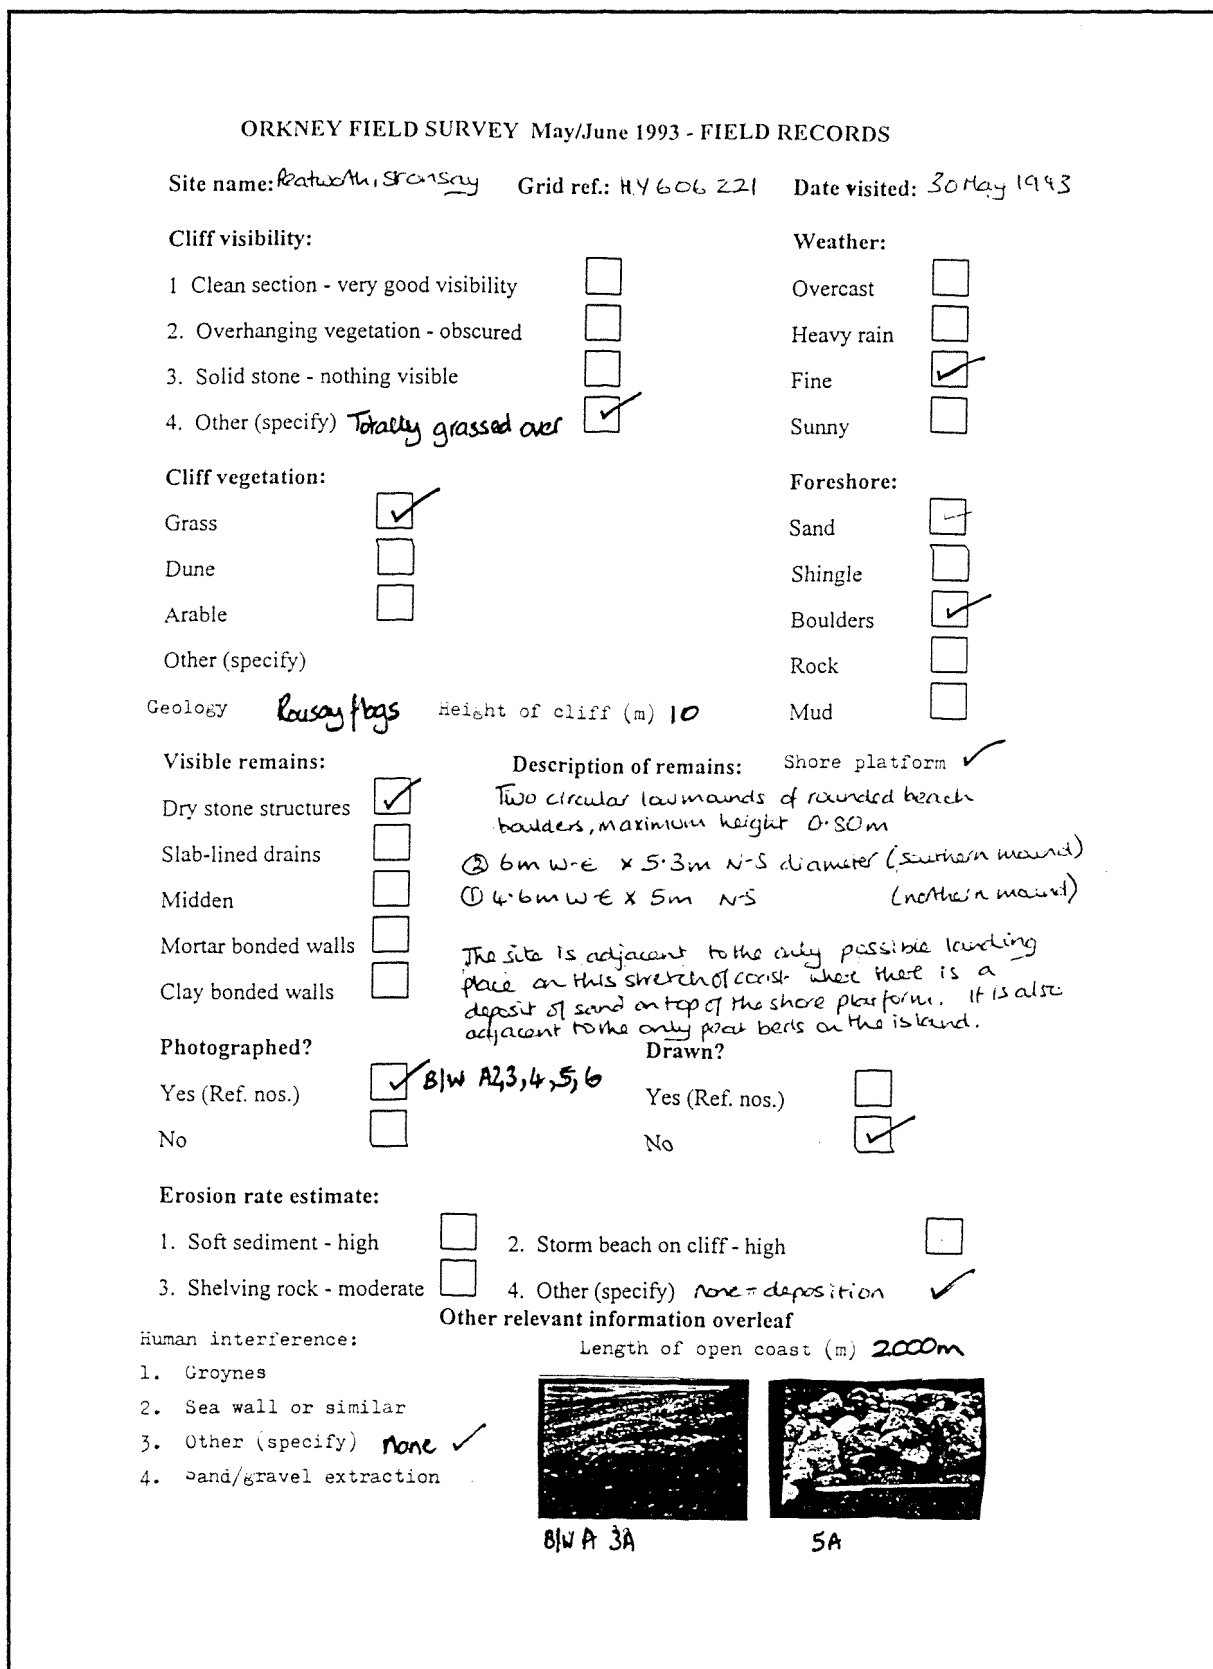 ORKNEY FIELD SURVEY May/June 1993 - FIELD RECORDS
Site name: Stronsay Grid ref.: HY 606 221 Date visited: 30 May 1993
Cliff visibility:
Weather:
1 Clean section - very good visibility
Overcast
2. Overhanging vegetation - obscured
Heavy rain
3. Solid stone - nothing visible
Fine
4. Other (specify) Totally grassed over
Sunny
Cliff vegetation:
Foreshore:
Grass
Sand
Dune
Shingle
Arable
Boulders
Other (specify)
Rock
Geology Rousay flags Height of cliff (m) 10
Mud
Visible remains:
Description of remains:
Shore platform
Dry stone structures
Slab-lined drains
Midden
Mortar bonded walls
Clay bonded walls
Two circular low mounds of rounded beach
boulders, maximum height 0.80m
② 6m W-E x 5.3m N-S diameter (southern mound)
① 4.6m W-E x 5m N-S (northern mound)
The site is adjacent to the only possible landing
place on this stretch of coast where there is a
deposit of sand on top of the shore platform. It is also
adjacent to the only peat beds on the island.
Photographed?
Yes (Ref. nos.) B/W A2,3,4,5,6
No
Drawn?
Yes (Ref. nos.)
No
Erosion rate estimate:
1. Soft sediment - high
2. Storm beach on cliff - high
3. Shelving rock - moderate
4. Other (specify) none = deposition
Other relevant information overleaf
Human interference:
Length of open coast (m) 2000m
1. Groynes
2. Sea wall or similar
3. Other (specify) none
4. Sand/gravel extraction
B/W A 3A
5A